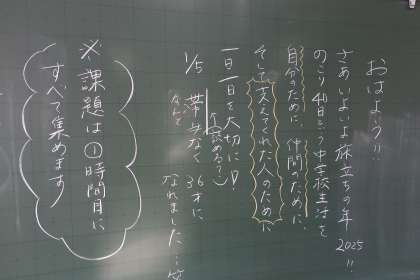 おはよう!!
さあいよいよ旅立ちの年2025!!
のこり48日!?中学校生活を
自分のために、仲間のために、
そして支えてくれた人のために
一日一日を大切に!
(読める?)
1/5 帯刀なく36才に
なんと
なれました…笑
※課題は①時間目に
すべて集めます